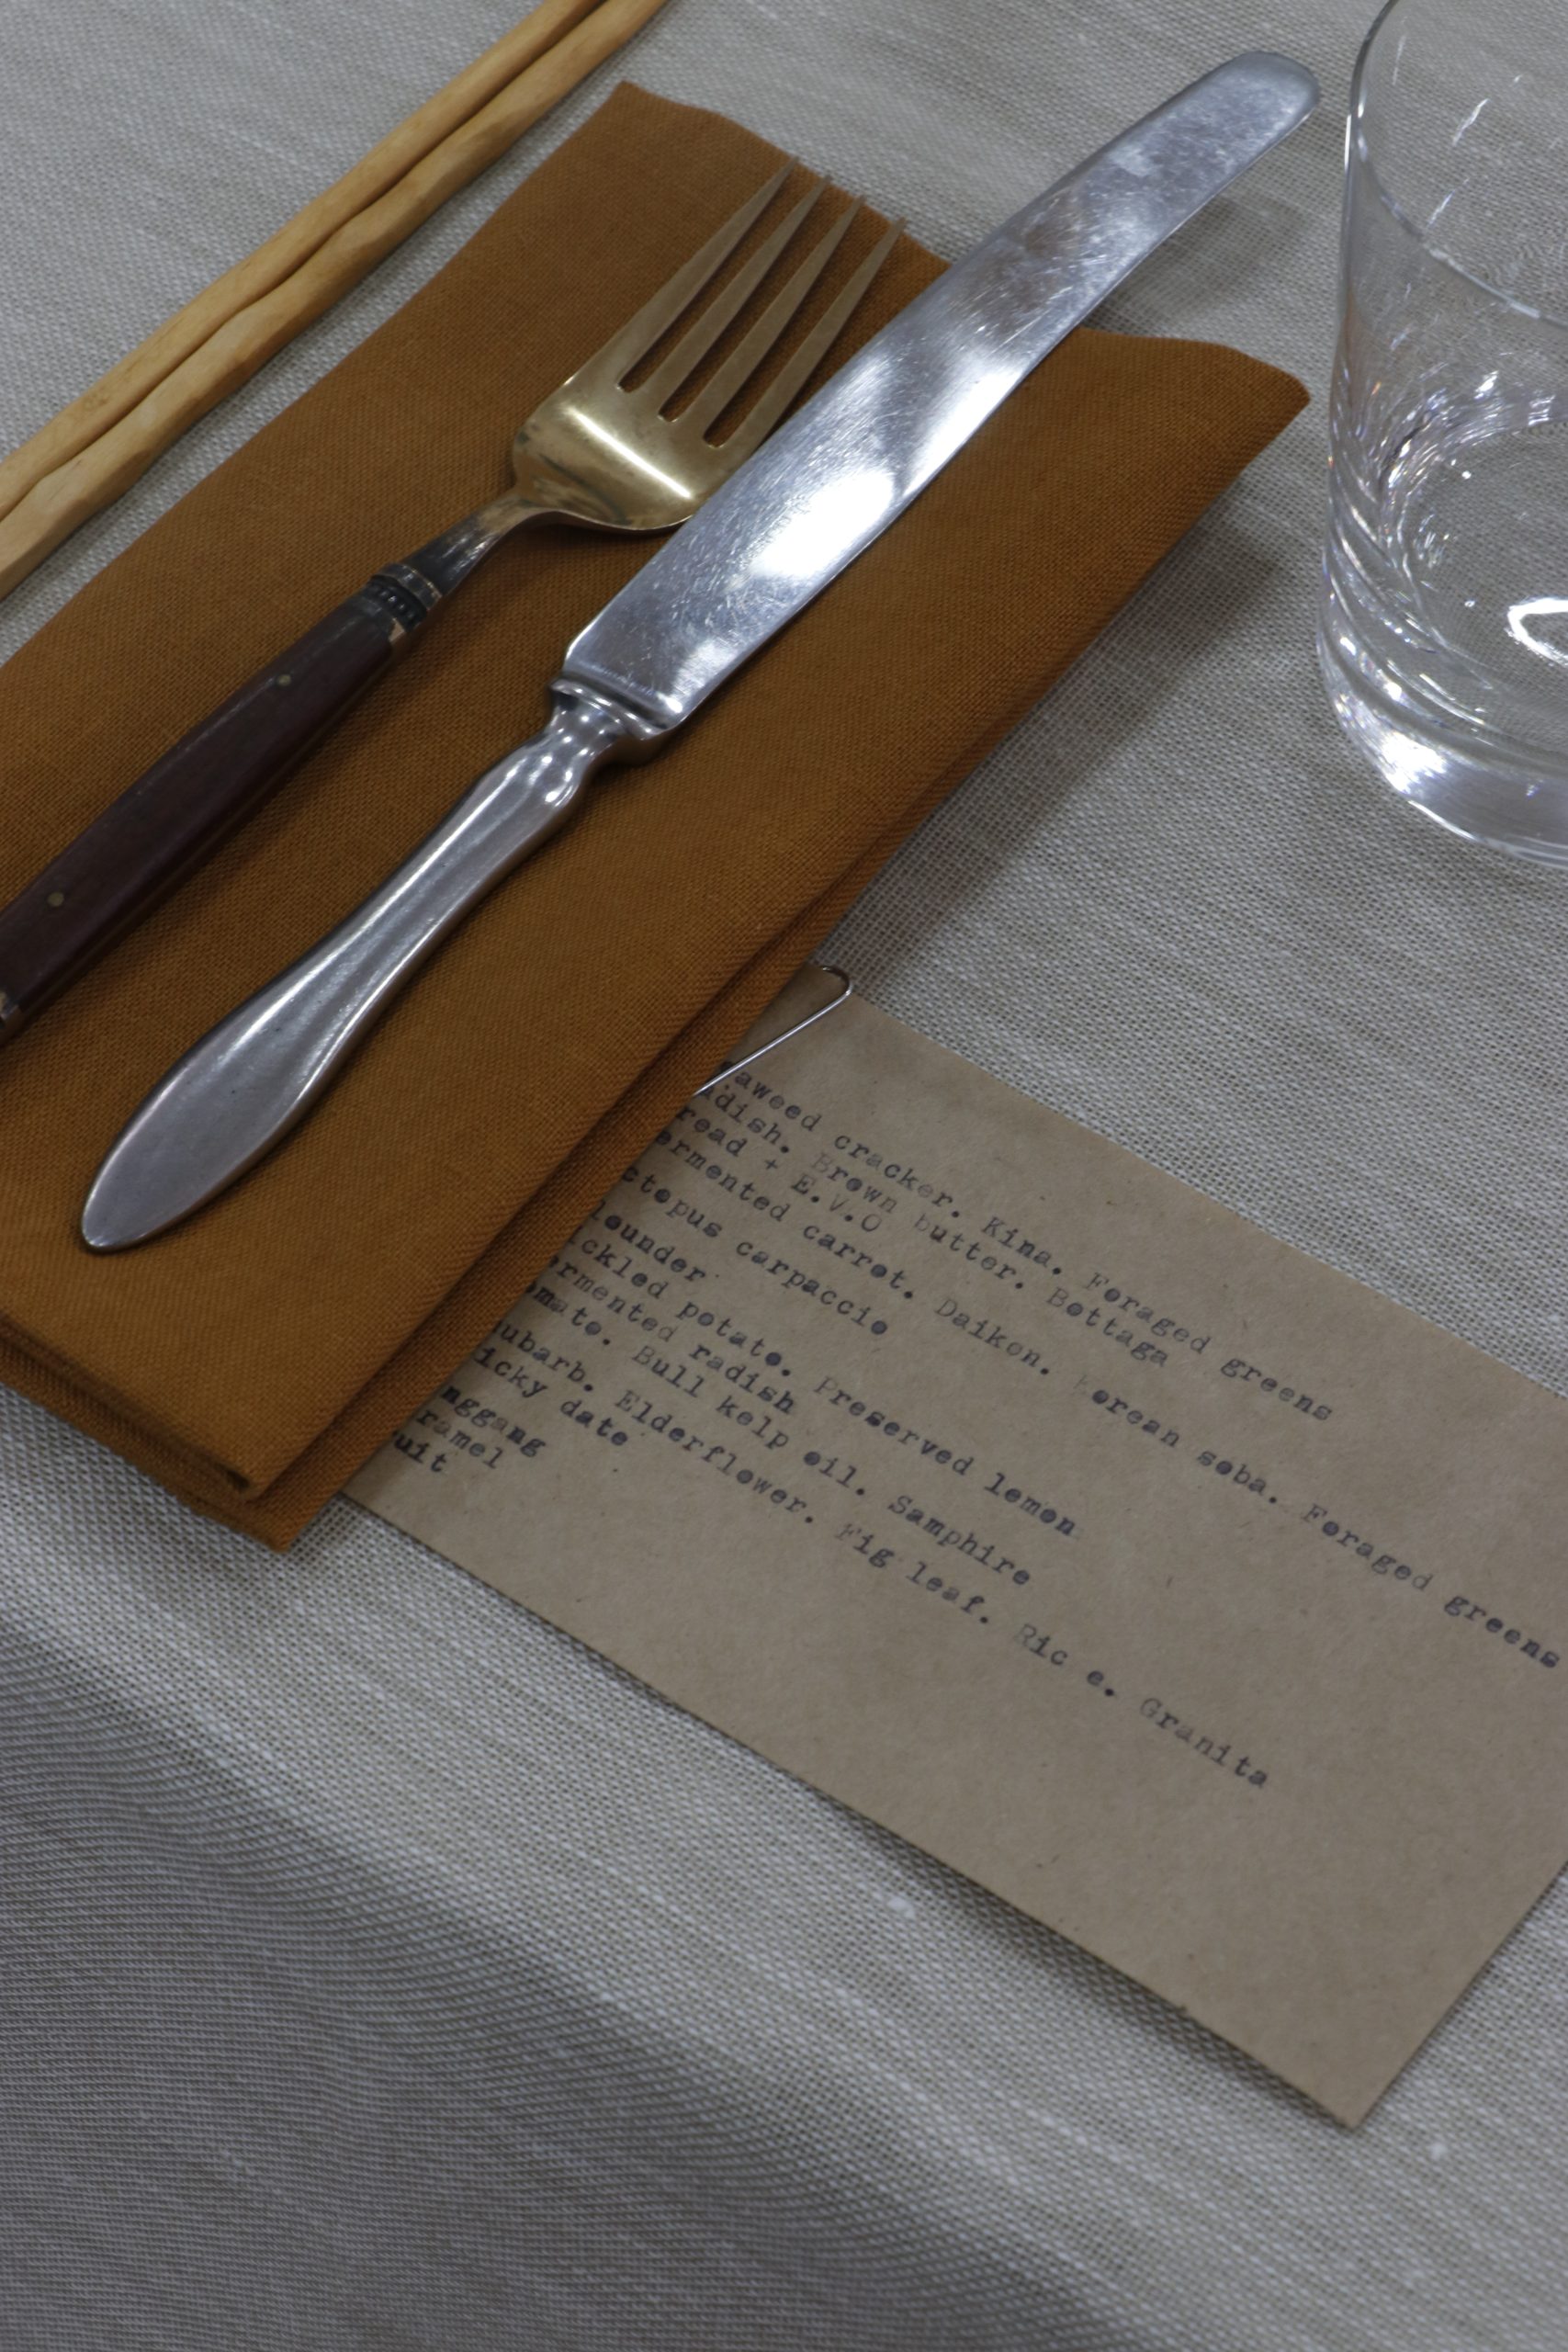 aweed cracker. Kina. Foraged greens
dish. Brown butter. Bottaga
read + E.V.O
ermented carrot. Daikon. Korean soba. Foraged greens
ctopus carpaccio
lounder
ickled potato. Preserved lemon
ermented radish
omato. Bull kelp oil. Samphire
ubarb. Elderflower. Fig leaf. Ric e. Granita
icky date
nggang
ramel
uit